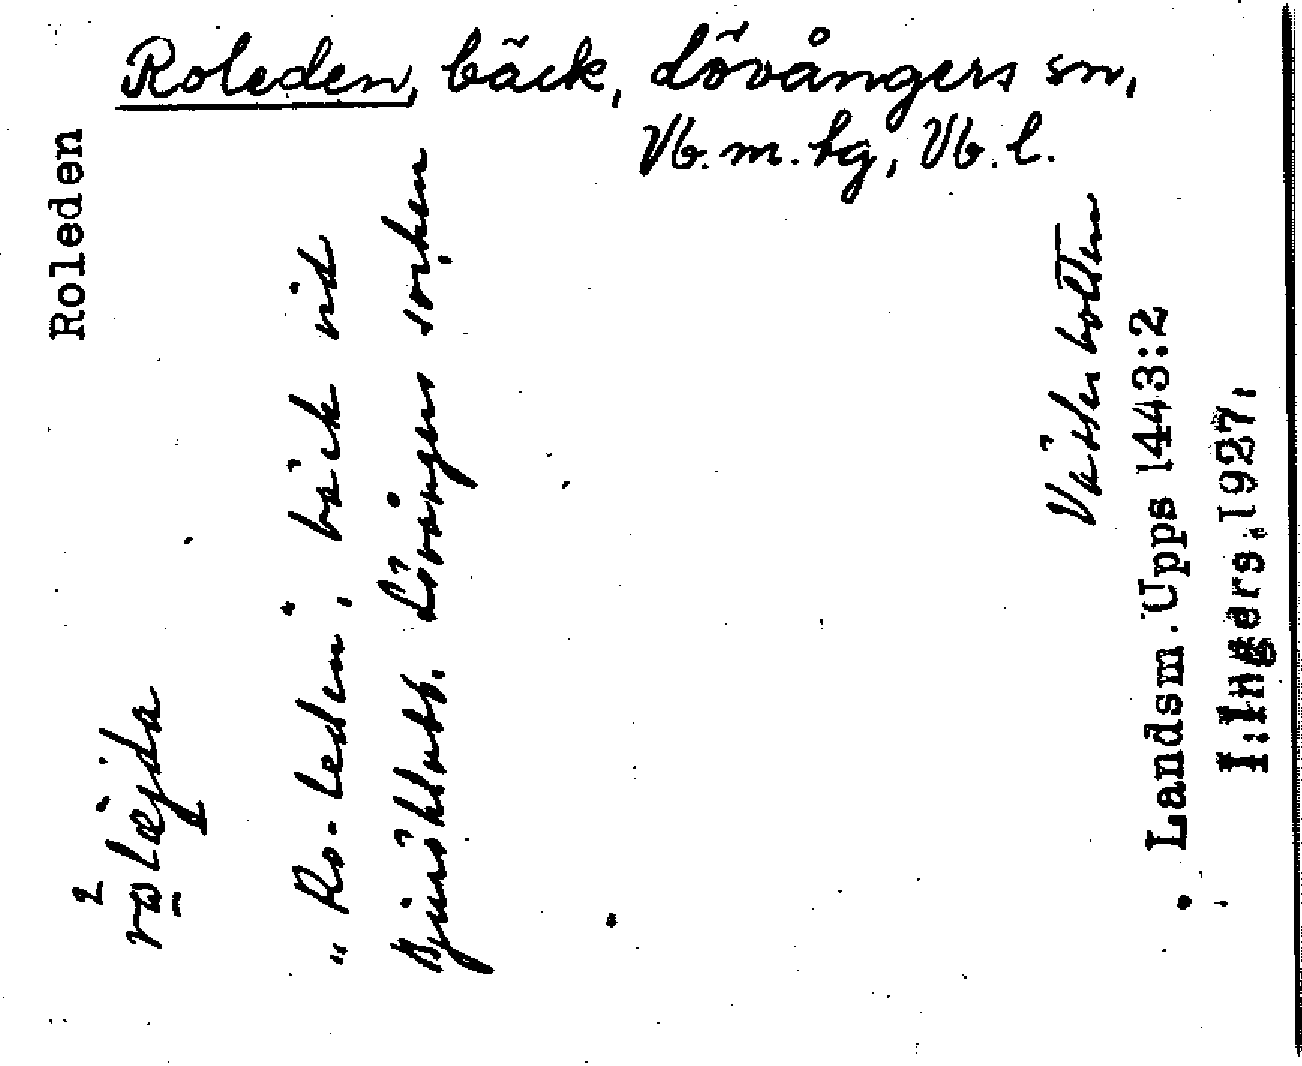 Roleden, bäck, Lövångers sn,
Vb. m. hg, Vb. l.
Roleden
"Ro-leden", bäck vid
Bjuröklubb. Lövångers socken
Västerbotten
Landsm. Upps 1443:2
I. Ingers. 1927.